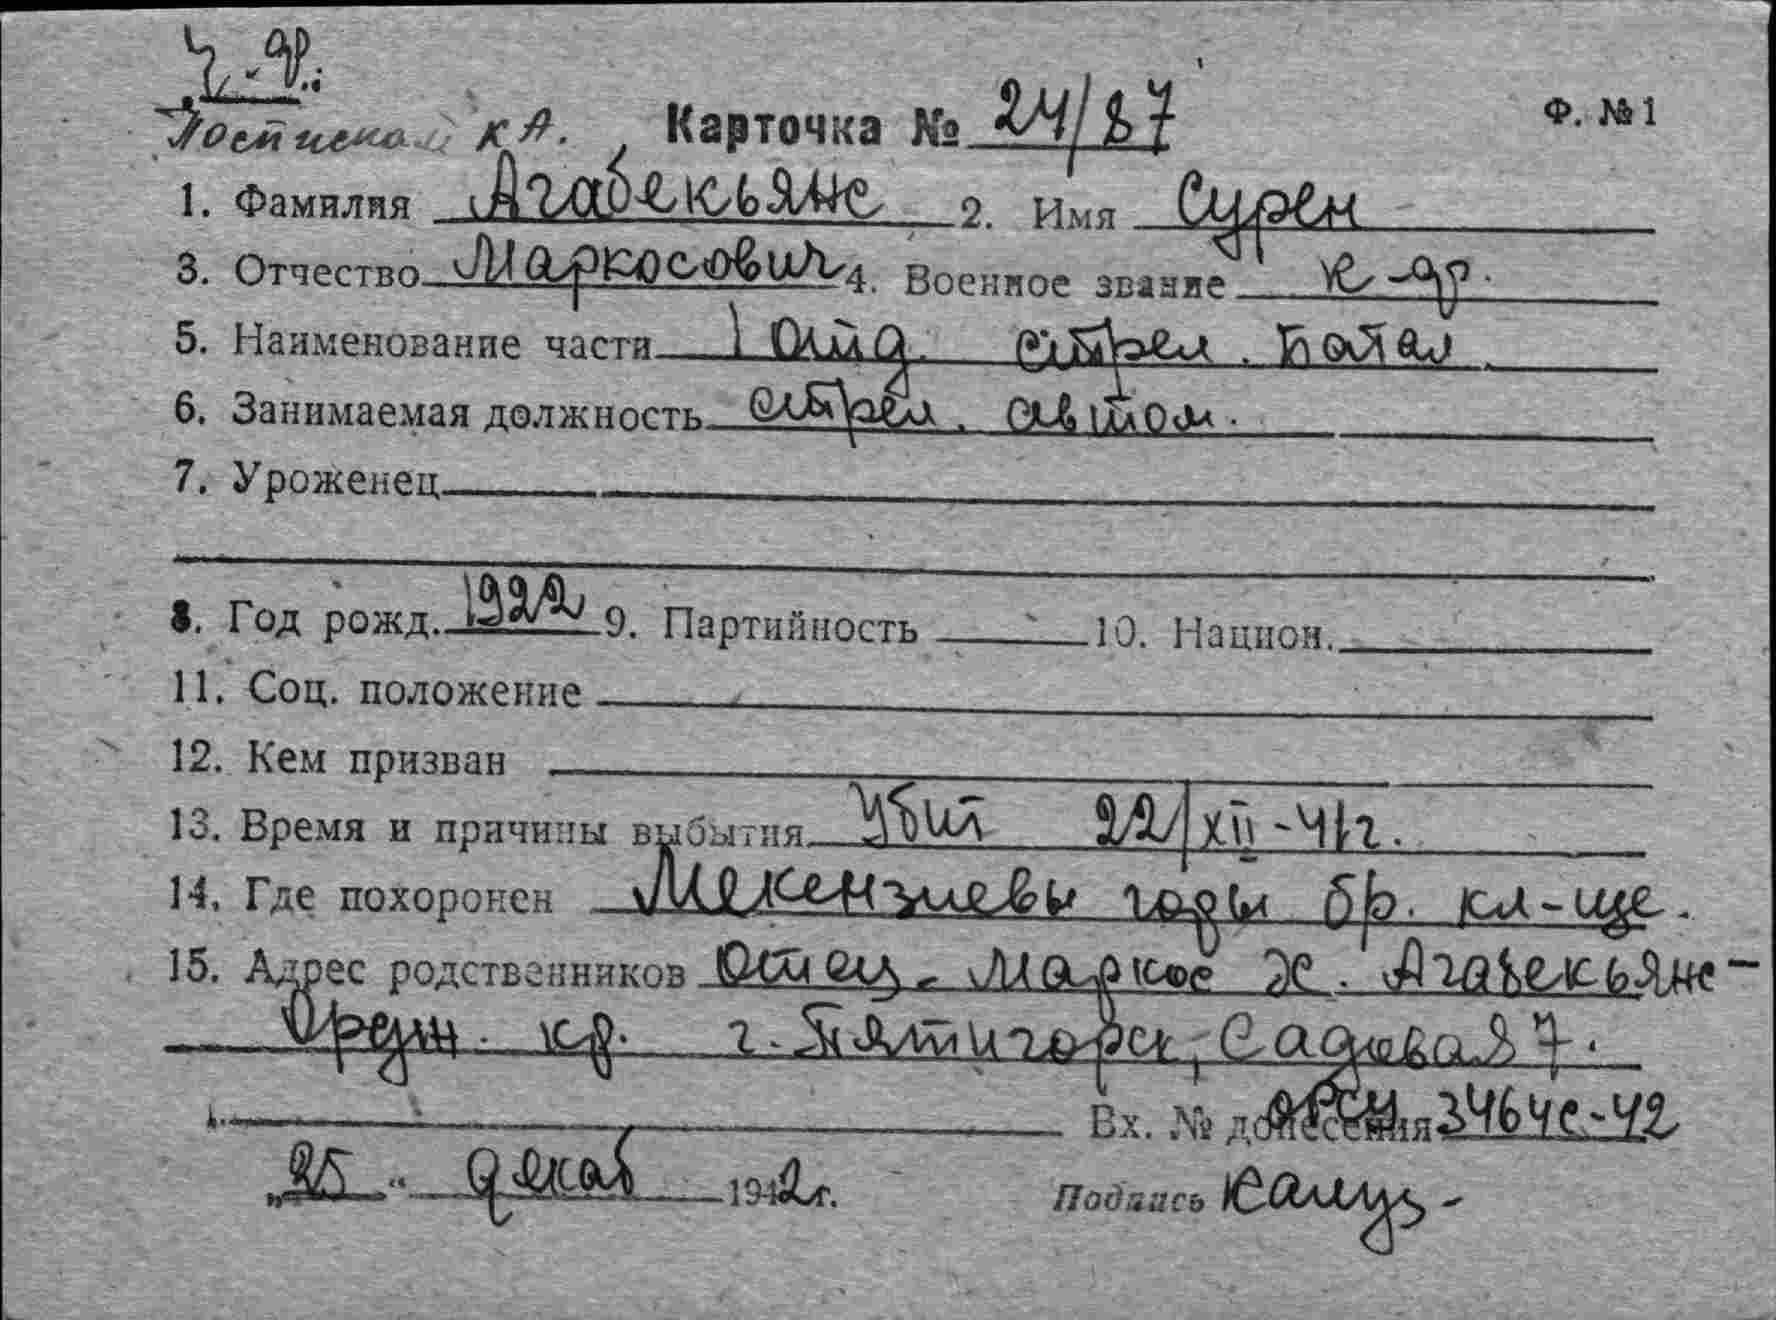 Ч.Ф.
По спискам КА. Карточка № 24/87 Ф. №1
1. Фамилия Агабекьянс 2. Имя Сурен
3. Отчество Маркосович 4. Военное звание к-др.
5. Наименование части 1 отд. стрел. Батал
6. Занимаемая должность стрел. автом.
7. Уроженец
8. Год рожд. 1922 9. Партийность 10. Национ.
11. Соц. положение
12. Кем призван
13. Время и причины выбытия Убит 22/XII-41г.
14. Где похоронен Мекензиевы горы бр. кл-ще.
15. Адрес родственников Отец - Маркос Х. Агабекьянс -
Ордж. кр. г. Пятигорск, Садовая 7.
Вх. № донесения 3464с-42
„25“ декаб 1942г. Подпись